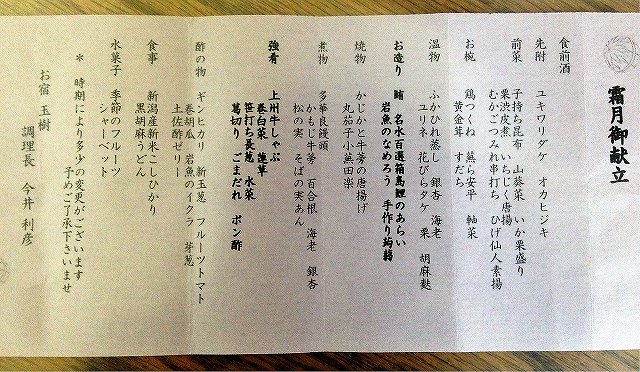 霜月御献立
食前酒
先附 ユキワリダケ オカヒジキ
前菜 子持ち昆布 山葵菜 いか栗盛り
栗渋皮煮 いちじく唐揚
むかごつみれ串打ち ひげ仙人素揚
お椀 鶏つくね 蕪ら安平 軸菜
黄金茸 すだち
温物 ふかひれ蒸し 銀杏 海老
ユリネ 花びらタケ 栗 胡麻麩
お造り 鮪 名水百選箱島鯉のあらい
岩魚のなめろう 手作り蒟蒻
焼物 かじかと牛蒡の唐揚げ
丸茄子小蕪田楽
煮物 多華良饅頭
かもじ牛蒡 百合根 海老 銀杏
松の実 そばの実あん
強肴 上州牛しゃぶ
巻白菜 蓮草
笹打ち長葱 水菜
葛切り ごまだれ ポン酢
酢の物 ギンヒカリ 新玉葱 フルーツトマト
巻胡瓜 岩魚のイクラ 芽葱
土佐酢ゼリー
食事 新潟産新米こしひかり
黒胡麻うどん
水菓子 季節のフルーツ
シャーベット
* 時期により多少の変更がございます
予めご了承下さいませ
お宿 玉樹
調理長 今井 利彦